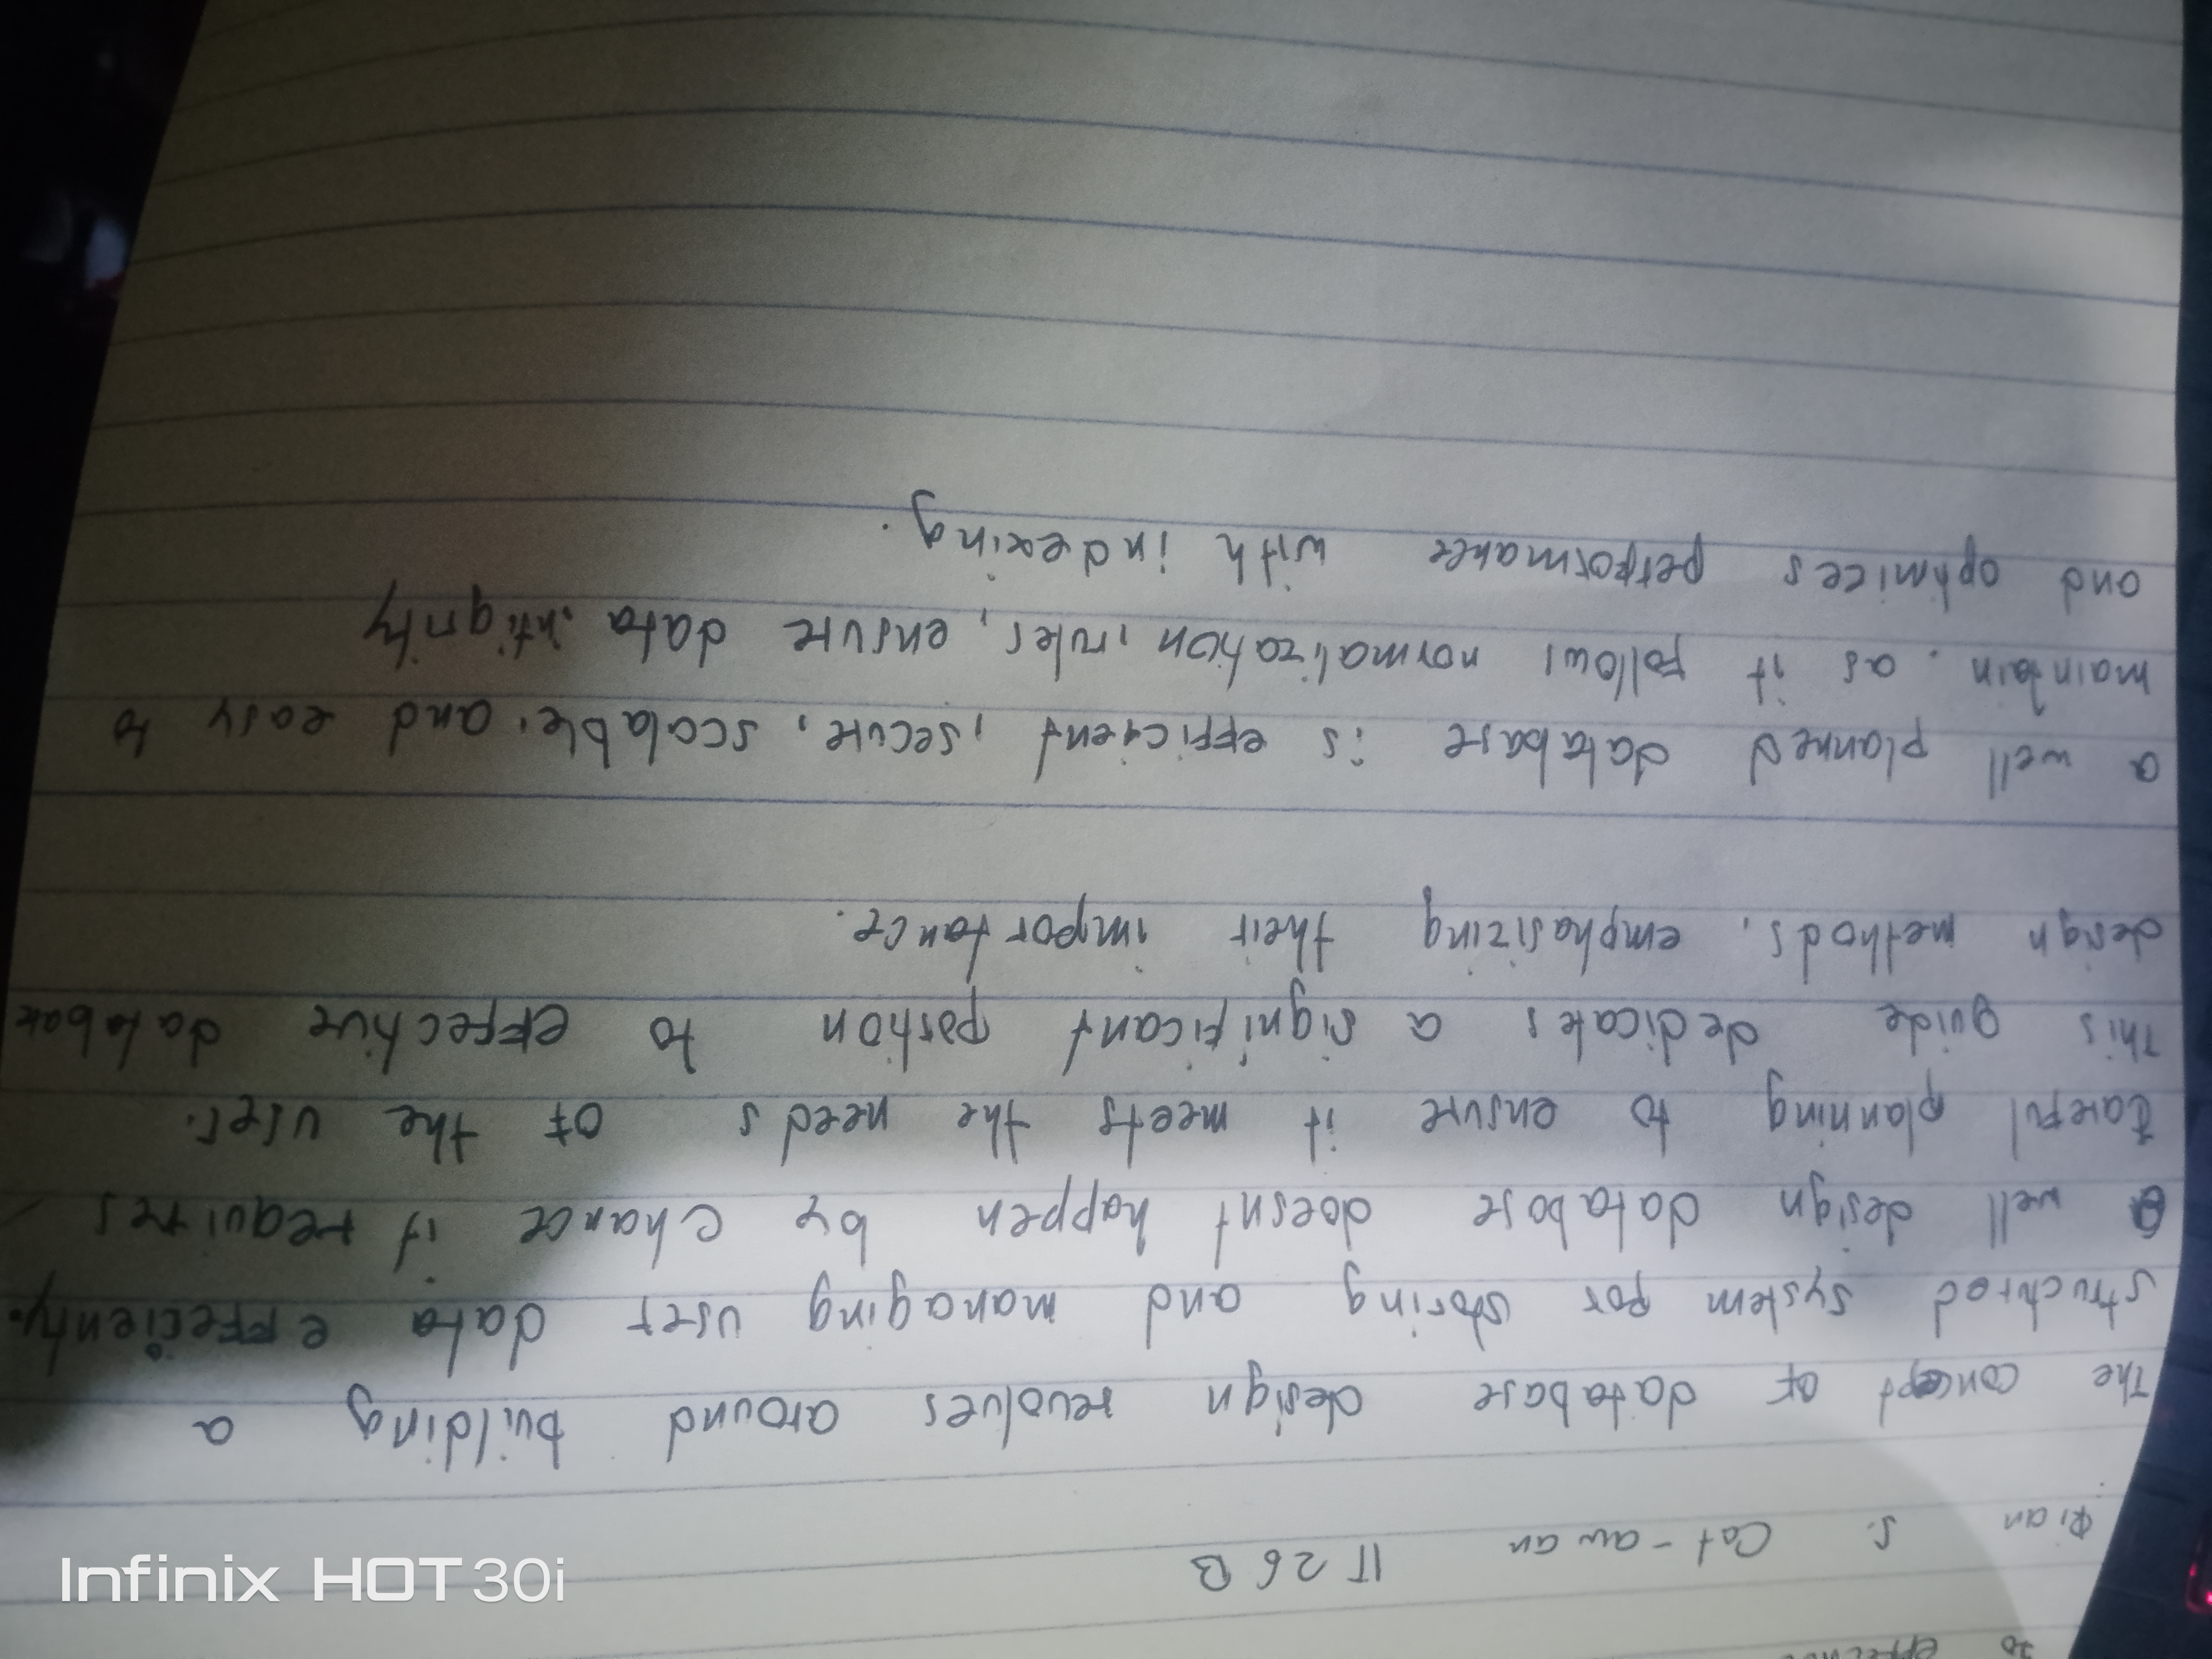 to
Rian S. Cat-awan IT26B
The concept of database design revolves around building a
structred system for storing and managing user data effeciently.
a well design database doesnt happen by chance it requires
careful planning to ensure it meets the needs of the user.
This guide dedicates a significant portion to effective database
design methods, emphasizing their importance.
a well planned database is efficient, secure, scalable, and easy to
maintain. as it follows normalization, rules, ensure data intigrity
and optimices performance with indexing.
Infinix HOT 30i